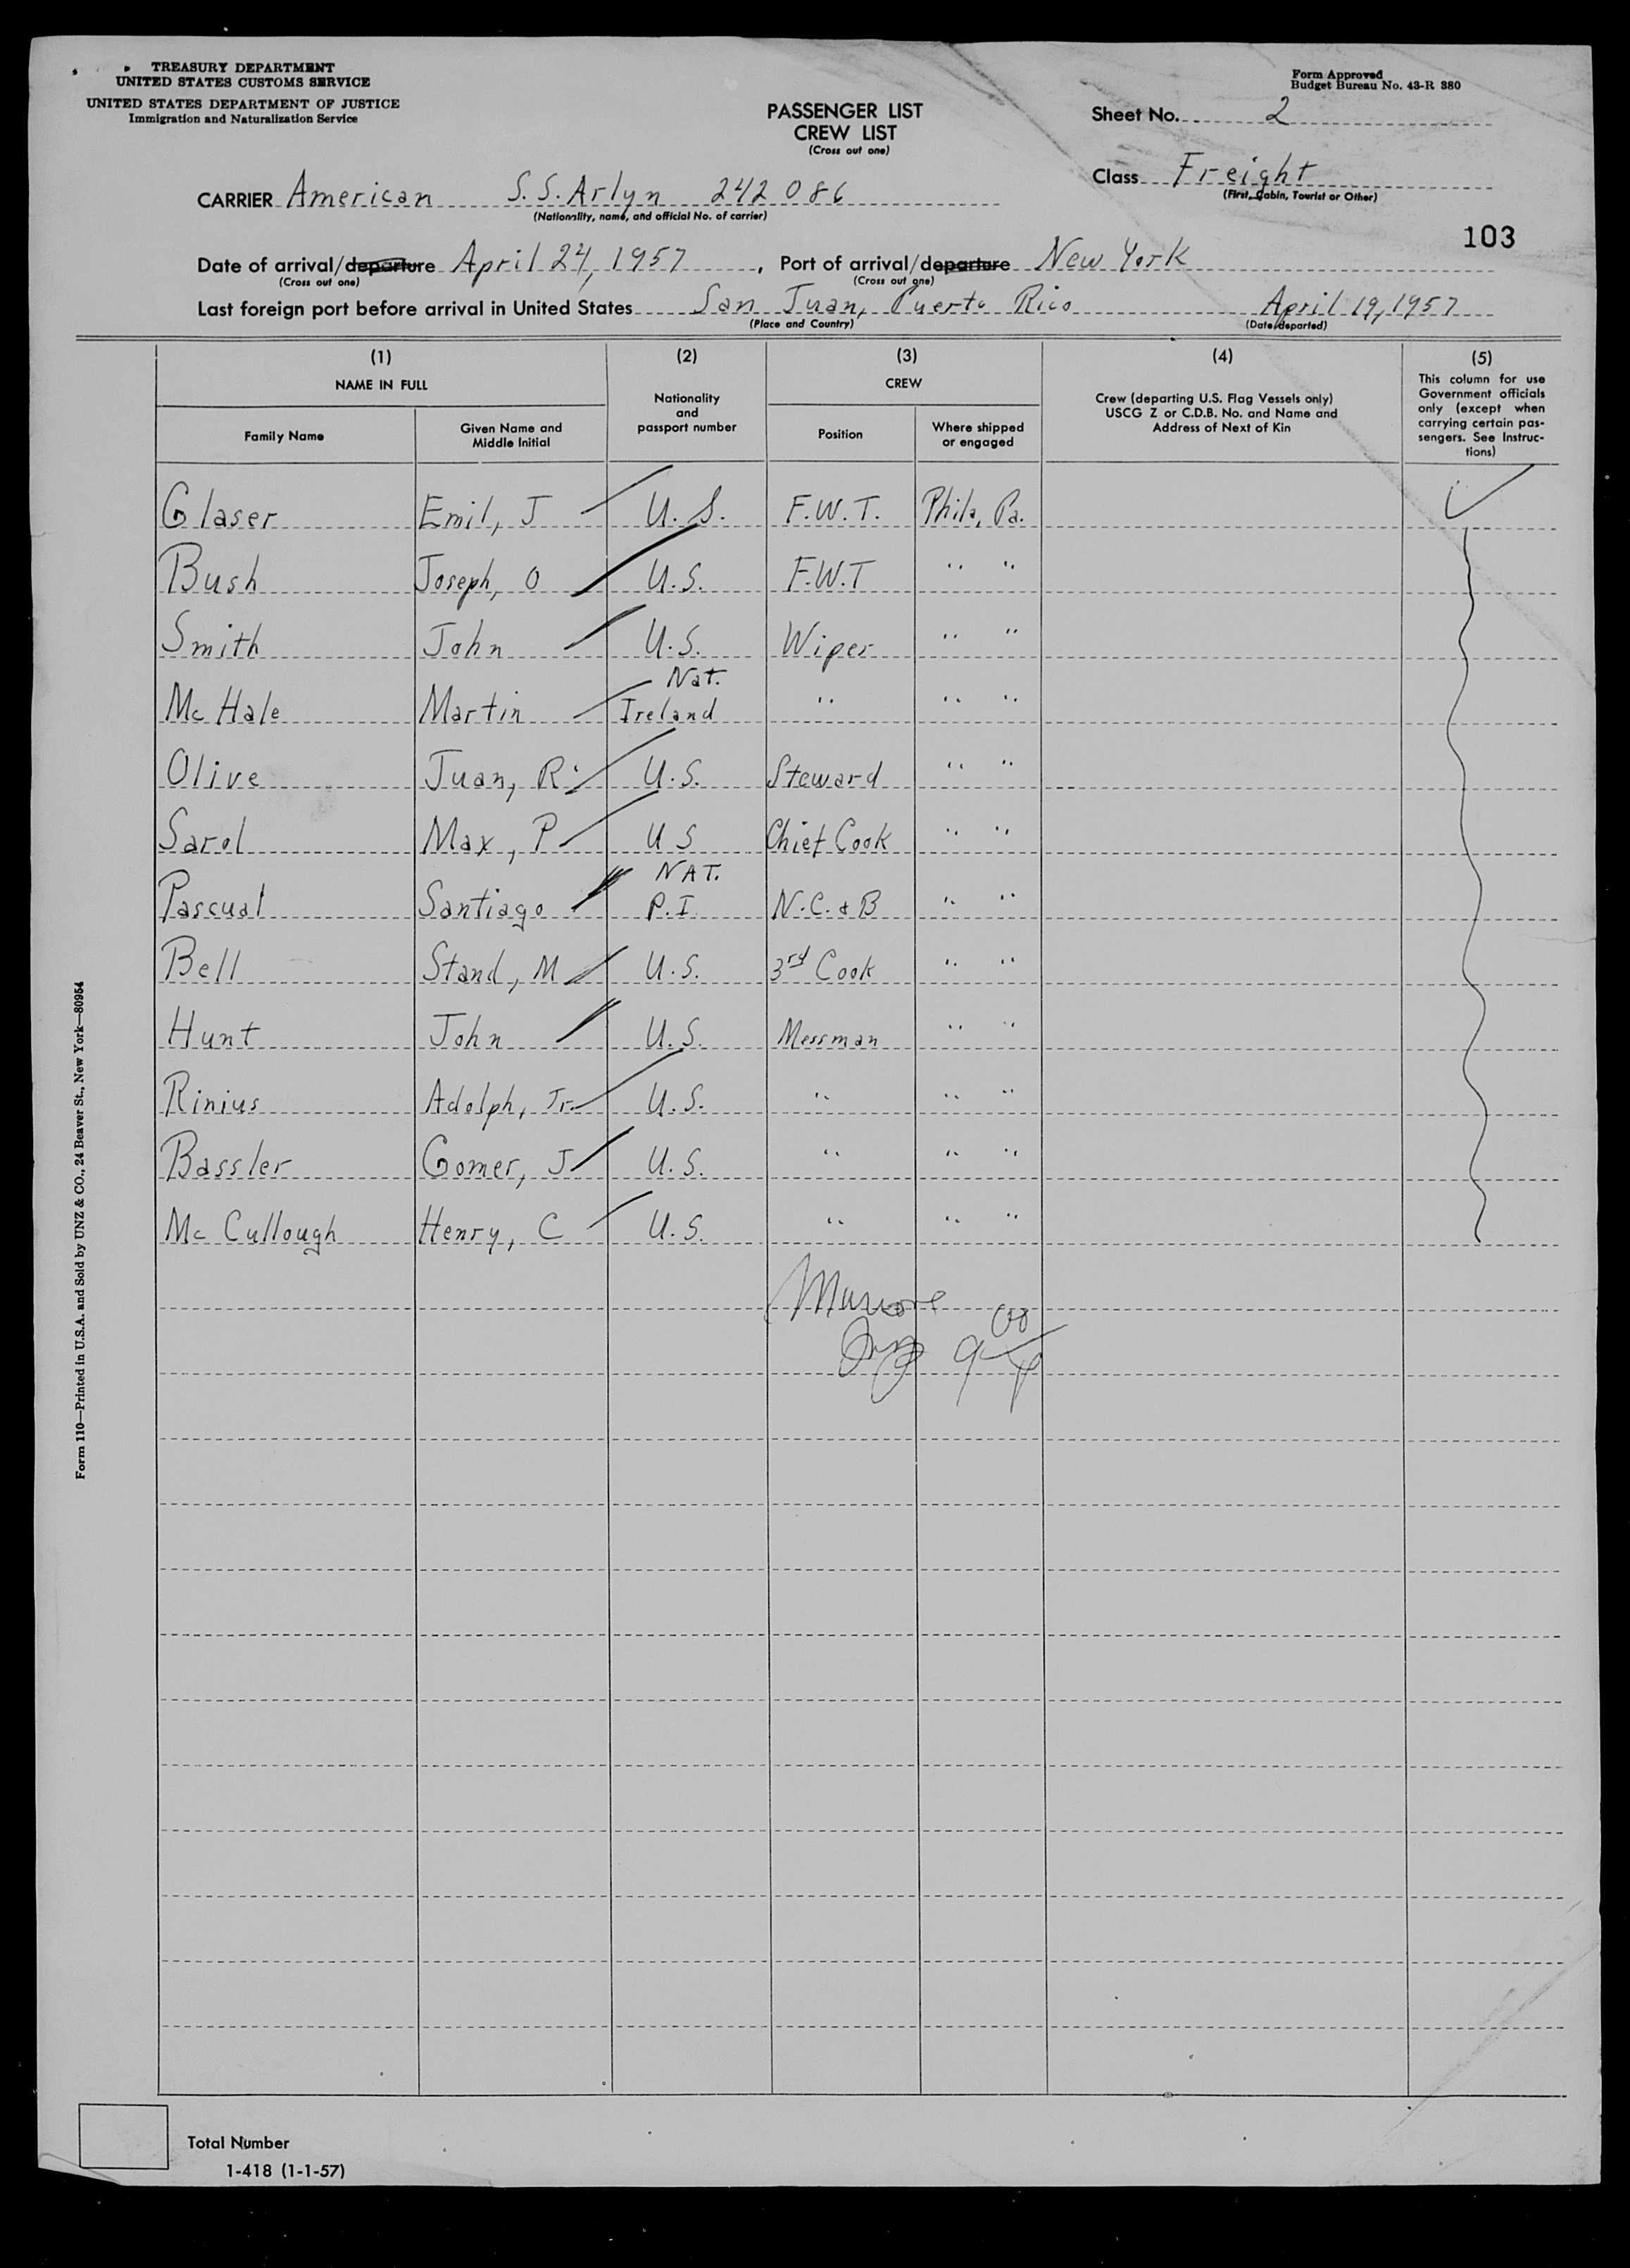 TREASURY DEPARTMENT
UNITED STATES CUSTOMS SERVICE
UNITED STATES DEPARTMENT OF JUSTICE
Immigration and Naturalization Service
Form Approved
Budget Bureau No. 43-R 380
PASSENGER LIST
CREW LIST
(Cross out one)
Sheet No. 2
Class Freight
(First, Cabin, Tourist or Other)
CARRIER American S.S. Arlyn 242086
(Nationality, name, and official No. of carrier)
103
Date of arrival/departure April 24, 1957, Port of arrival/departure New York
(Cross out one) (Cross out one)
Last foreign port before arrival in United States San Juan, Puerto Rico April 19, 1957
(Place and Country) (Date departed)
(1) (2) (3) (4) (5)
NAME IN FULL
Family Name
Given Name and Middle Initial
Nationality and passport number
CREW
Position
Where shipped or engaged
Crew (departing U.S. Flag Vessels only)
USCG Z or C.D.B. No. and Name and
Address of Next of Kin
This column for use
Government officials
only (except when
carrying certain pas-
sengers. See Instruc-
tions)
Glaser Emil, J U.S. F.W.T. Phila, Pa.
Bush Joseph, O U.S. F.W.T " "
Smith John U.S. Wiper " "
Mc Hale Martin Nat. Ireland " " "
Olive Juan, R. U.S. Steward " "
Sarol Max, P U S Chief Cook " "
Pascual Santiago NAT. P.I. N.C. & B " "
Bell Stand, M U.S. 3rd Cook " "
Hunt John U.S. Messman " "
Rinius Adolph, Jr. U.S. " " "
Bassler Gomer, J U.S. " " "
Mc Cullough Henry, C U.S. " " "
Form 110—Printed in U.S.A. and Sold by UNZ & CO., 24 Beaver St., New York—80954
Total Number
1-418 (1-1-57)